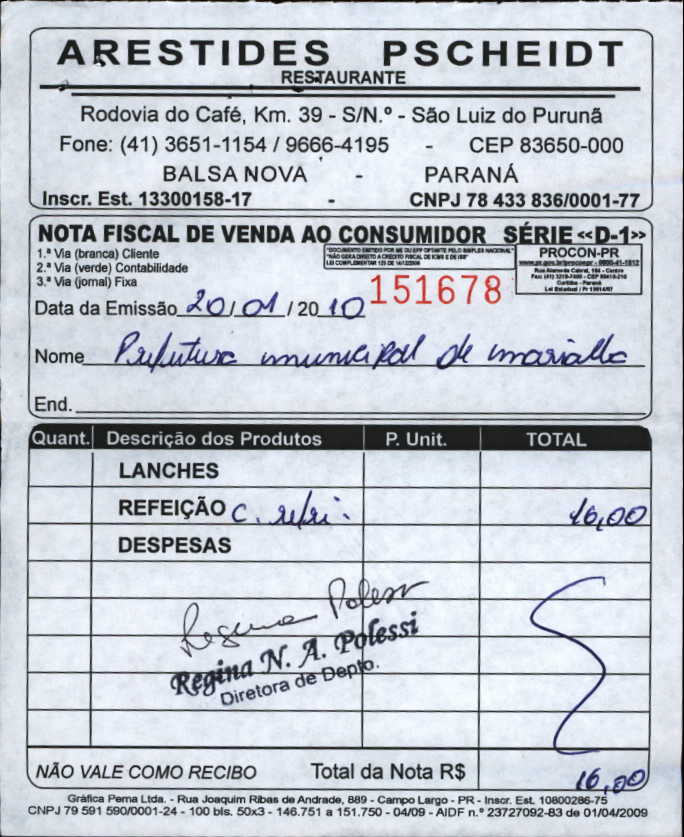 ARESTIDES PSCHEIDT
RESTAURANTE
Rodovia do Café, Km. 39 - S/N.º - São Luiz do Purunã
Fone: (41) 3651-1154 / 9666-4195 - CEP 83650-000
BALSA NOVA - PARANÁ
Inscr. Est. 13300158-17 - CNPJ 78 433 836/0001-77
NOTA FISCAL DE VENDA AO CONSUMIDOR SÉRIE «D-1»
1.ª Via (branca) Cliente
2.ª Via (verde) Contabilidade
3.ª Via (jornal) Fixa
"DOCUMENTO EMITIDO POR ME OU EPP OPTANTE PELO SIMPLES NACIONAL"
"NÃO GERA DIREITO A CRÉDITO FISCAL DE ICMS E DE ISS"
LEI COMPLEMENTAR 123 DE 14/12/2006
PROCON-PR
Rua Alameda Cabral, 184 - Centro
Curitiba - Paraná
151678
Data da Emissão 20/01/2010
Nome Prefeitura municipal de marialva
End.
Quant. Descrição dos Produtos P. Unit. TOTAL
LANCHES
REFEIÇÃO c. refri. 16,00
DESPESAS
Regina Polessi
Regina N. A. Polessi
Diretora de Depto.
NÃO VALE COMO RECIBO Total da Nota R$ 16,00
Gráfica Pema Ltda. - Rua Joaquim Ribas de Andrade, 889 - Campo Largo - PR - Inscr. Est. 10800286-75
CNPJ 79 591 590/0001-24 - 100 bls. 50x3 - 146.751 a 151.750 - 04/09 - AIDF n.º 23727092-83 de 01/04/2009